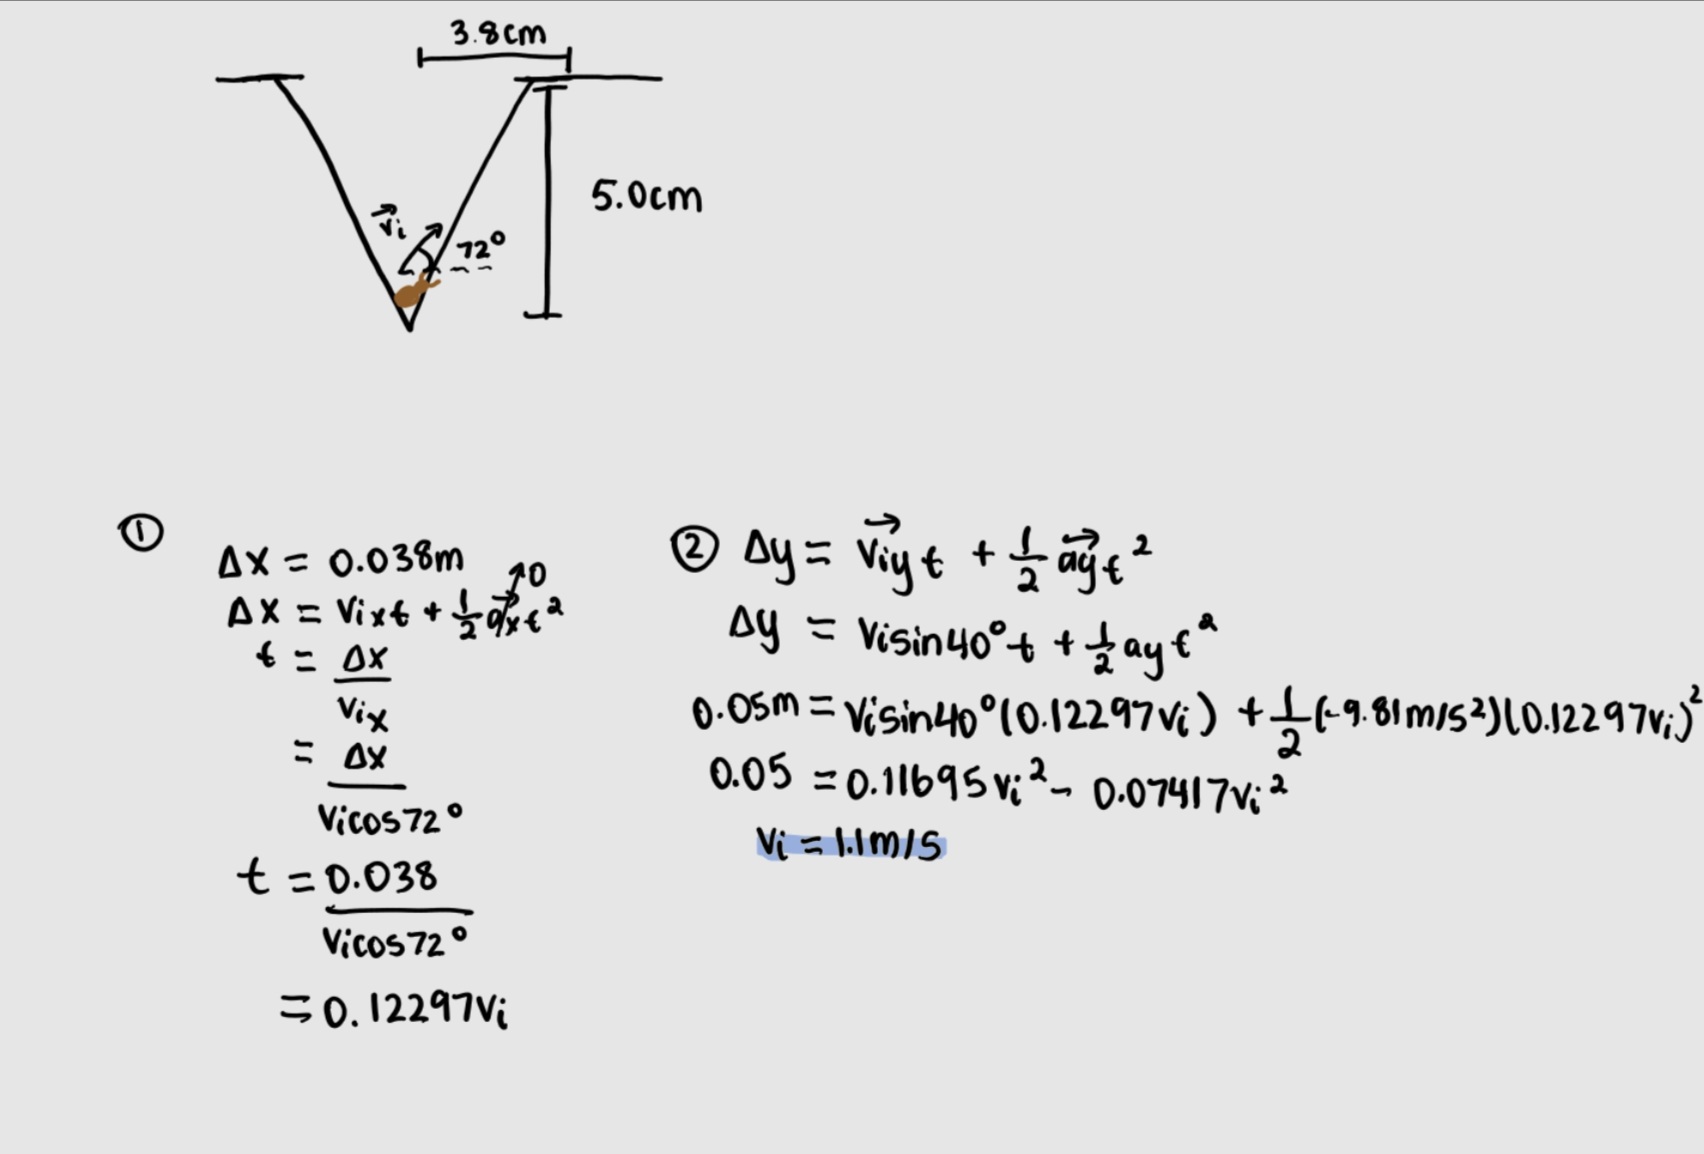 3.8cm
5.0cm
v⃗i
72°
①
Δx = 0.038m
Δx = vixt + 1/2 a⃗xt² →0
t = Δx / vix
= Δx / vicos72°
t = 0.038 / vicos72°
= 0.12297vi
② Δy = v⃗iyt + 1/2 a⃗yt²
Δy = visin40°t + 1/2 ayt²
0.05m = visin40°(0.12297vi) + 1/2 (-9.81m/s²)(0.12297vi)²
0.05 = 0.11695vi² - 0.07417vi²
vi = 1.1m/s